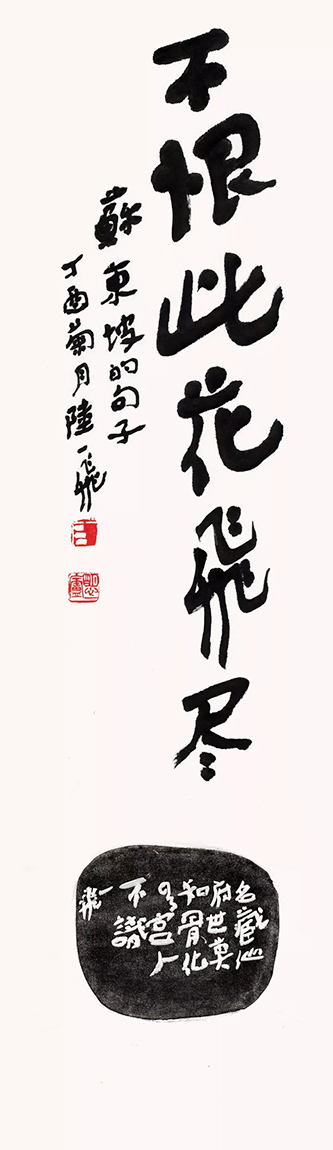 不恨此花飛尽
蘇東坡的句子
丁酉菊月陸一飛
名藏仙
府世莫
知骨化
宮人
不識
一飛